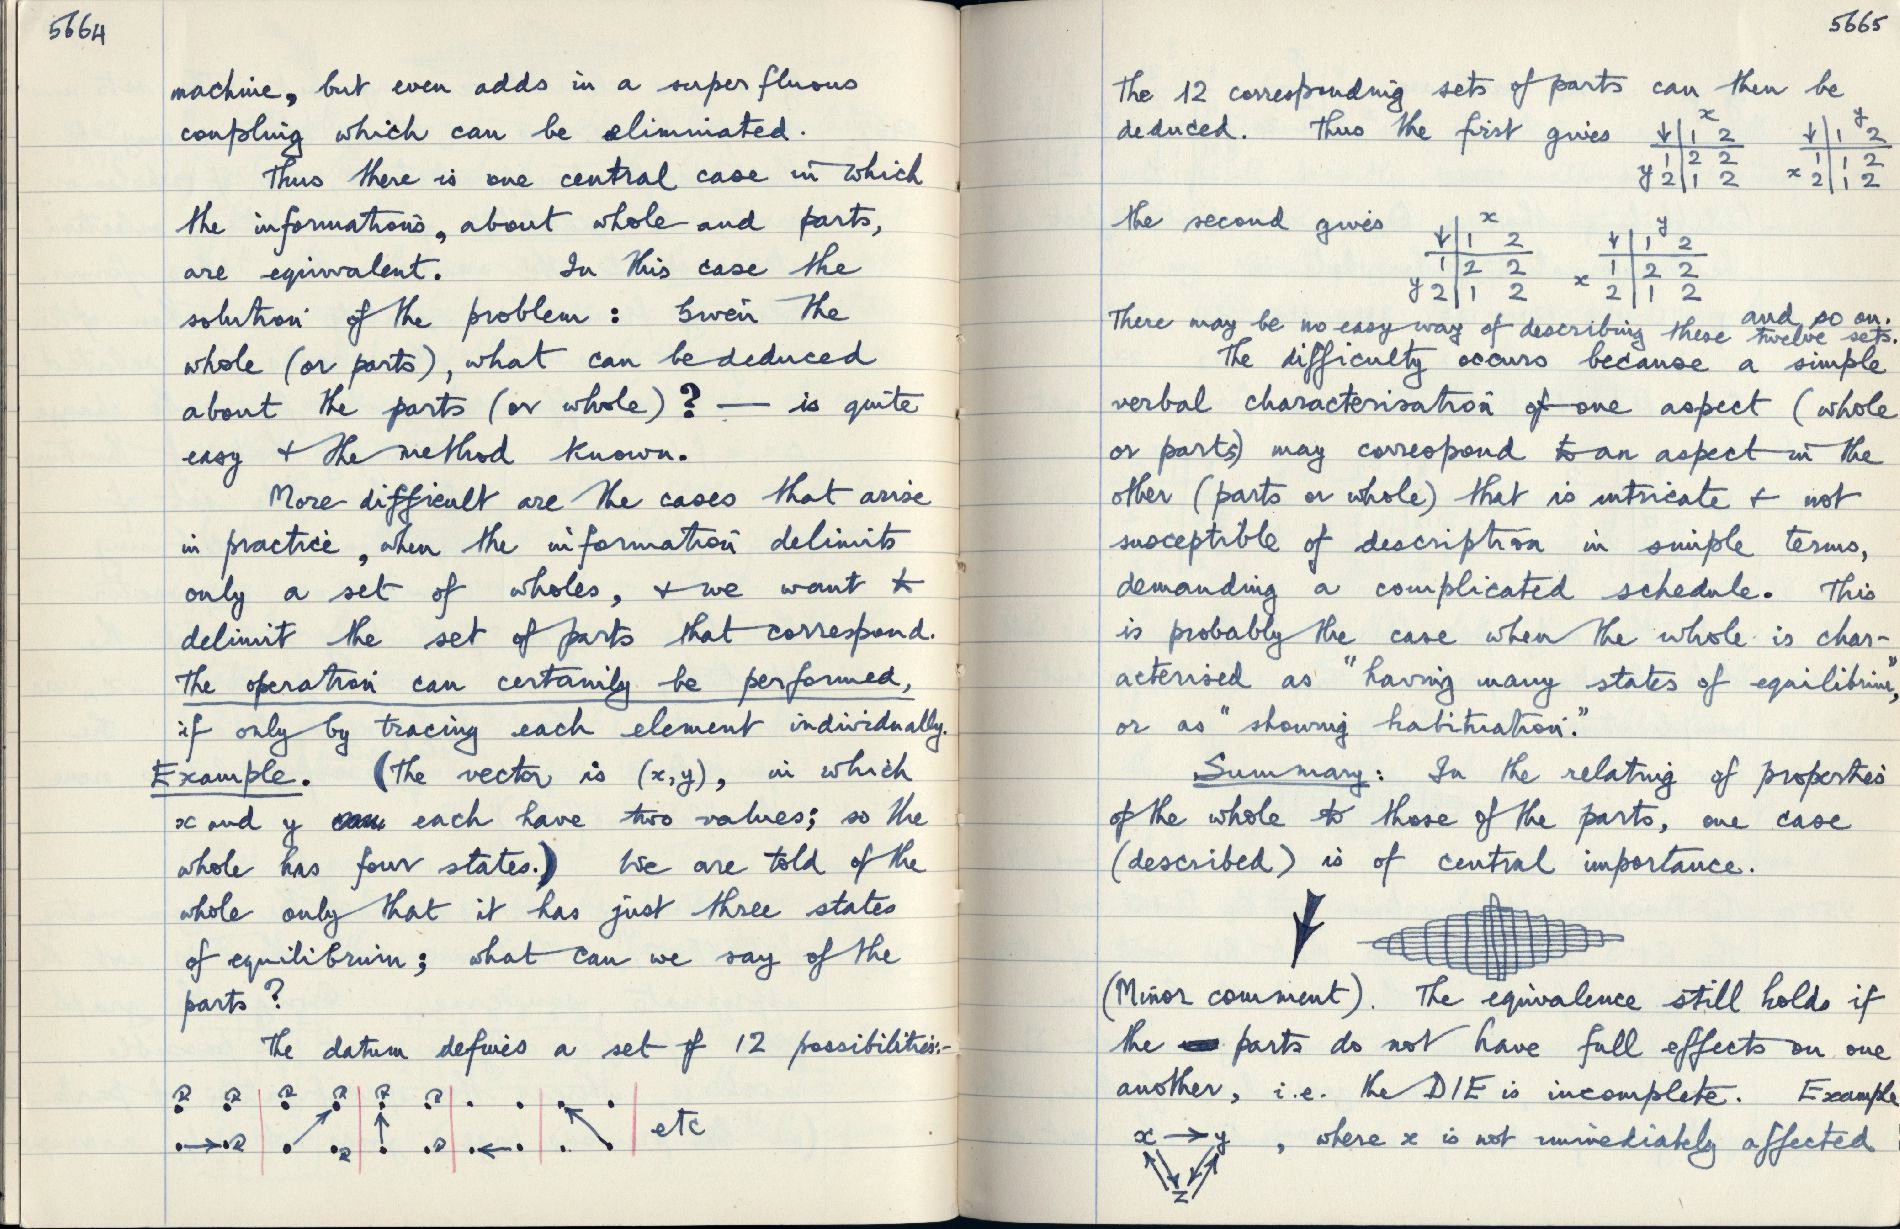 5664
machine, but even adds in a superfluous
coupling which can be eliminated.
Thus there is one central case in which
the informations, about whole and parts,
are equivalent. In this case the
solution of the problem: Given the
whole (or parts), what can be deduced
about the parts (or whole)? — is quite
easy + the method known.
More difficult are the cases that arise
in practice, when the information delimits
only a set of wholes, + we want to
delimit the set of parts that correspond.
The operation can certainly be performed,
if only by tracing each element individually.
Example. (The vector is (x,y), in which
x and y each have two values; so the
whole has four states.) We are told of the
whole only that it has just three states
of equilibrium; what can we say of the
parts?
The datum defines a set of 12 possibilities:-
etc
5665
The 12 corresponding sets of parts can then be
deduced. Thus the first gives
x
↓ 1 2
1 2 2
y 2 1 2
y
↓ 1 2
1 1 2
x 2 1 2
the second gives
x
↓ 1 2
1 2 2
y 2 1 2
y
↓ 1 2
x 1 2 2
2 1 2
and so on.
There may be no easy way of describing these twelve sets.
The difficulty occurs because a simple
verbal characterisation of one aspect (whole
or parts) may correspond to an aspect in the
other (parts or whole) that is intricate + not
susceptible of description in simple terms,
demanding a complicated schedule. This
is probably the case when the whole is char-
acterised as "having many states of equilibrium",
or as "showing habituation."
Summary: In the relating of properties
of the whole to those of the parts, one case
(described) is of central importance.
(Minor comment). The equivalence still holds if
the parts do not have full effects on one
another, i.e. the DIE is incomplete. Example
x → y , where x is not immediately affected
z